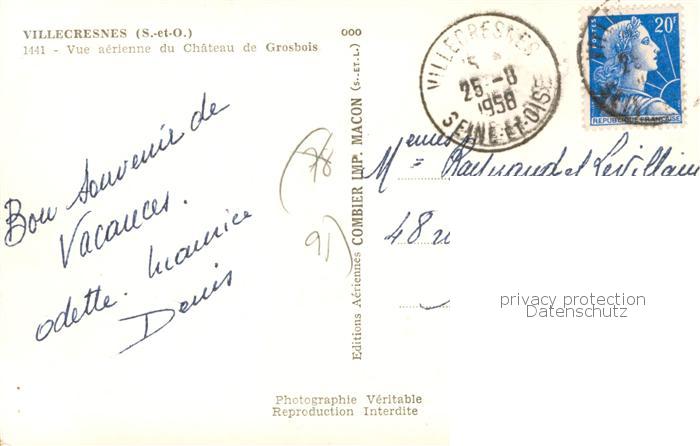 VILLECRESNES (S.-et-O.)
1441 - Vue aérienne du Château de Grosbois
ooo
Bon souvenir de
Vacances.
odette. Maurice
Denis
(78
91)
Editions Aériennes COMBIER IMP. MACON (S.-ET-L.)
VILLECRESNES
25-8
1958
SEINE-ET-OISE
20F
POSTES
REPUBLIQUE FRANCAISE
et Levillain
48 r
privacy protection
Datenschutz
Photographie Véritable
Reproduction Interdite